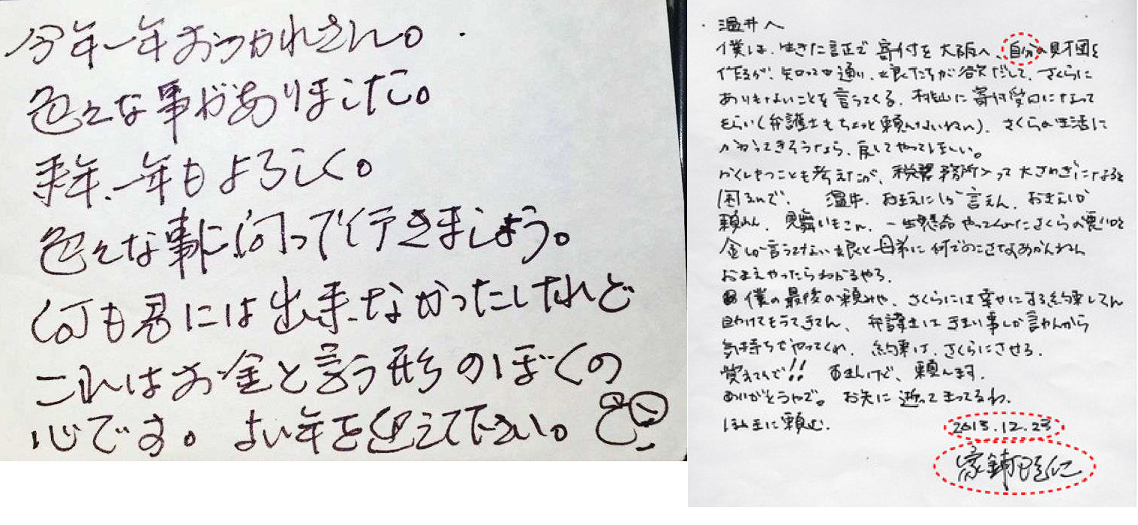 今年一年おつかれさん。
色々な事がありました。
来年、一年もよろしく。
色々な事に向って行きましょう。
何も君には出来なかったけれど
これはお金と言う形のぼくの
心です。よい年を迎えて下さい。
温井へ
僕は、生きた証で寄付を大阪へ、自分の財団を
作るが、知っての通り、娘たちが欲だして、さくらに
ありもないことを言うてくる、桃山に寄付受口になって
もらい(弁護士もちょっと頼んないねん)、さくらの生活に
かかってきそうなら、戻してやってほしい。
かくしもつことも考えたが、税務署入って大さわぎになると
困るんで、温井、おまえにしか言えん、おまえしか
頼れん、一生懸命やってくれたさくらの悪い
金しか言うてない娘と母弟に何でのこさなあかんねん
おまえやったらわかるやろ
僕の最後の頼みや、さくらには幸せにする約束してん
助けてもうてきてん、弁護士はきまい事しか言わんから
気持ちでやってくれ、約束は、さくらにさせる。
覚えてんで!!、頼んます。
ありがとうやで。お先に逝ってまってるわ。
ほんまに頼む。
2013.12.23
家鋪隆仁